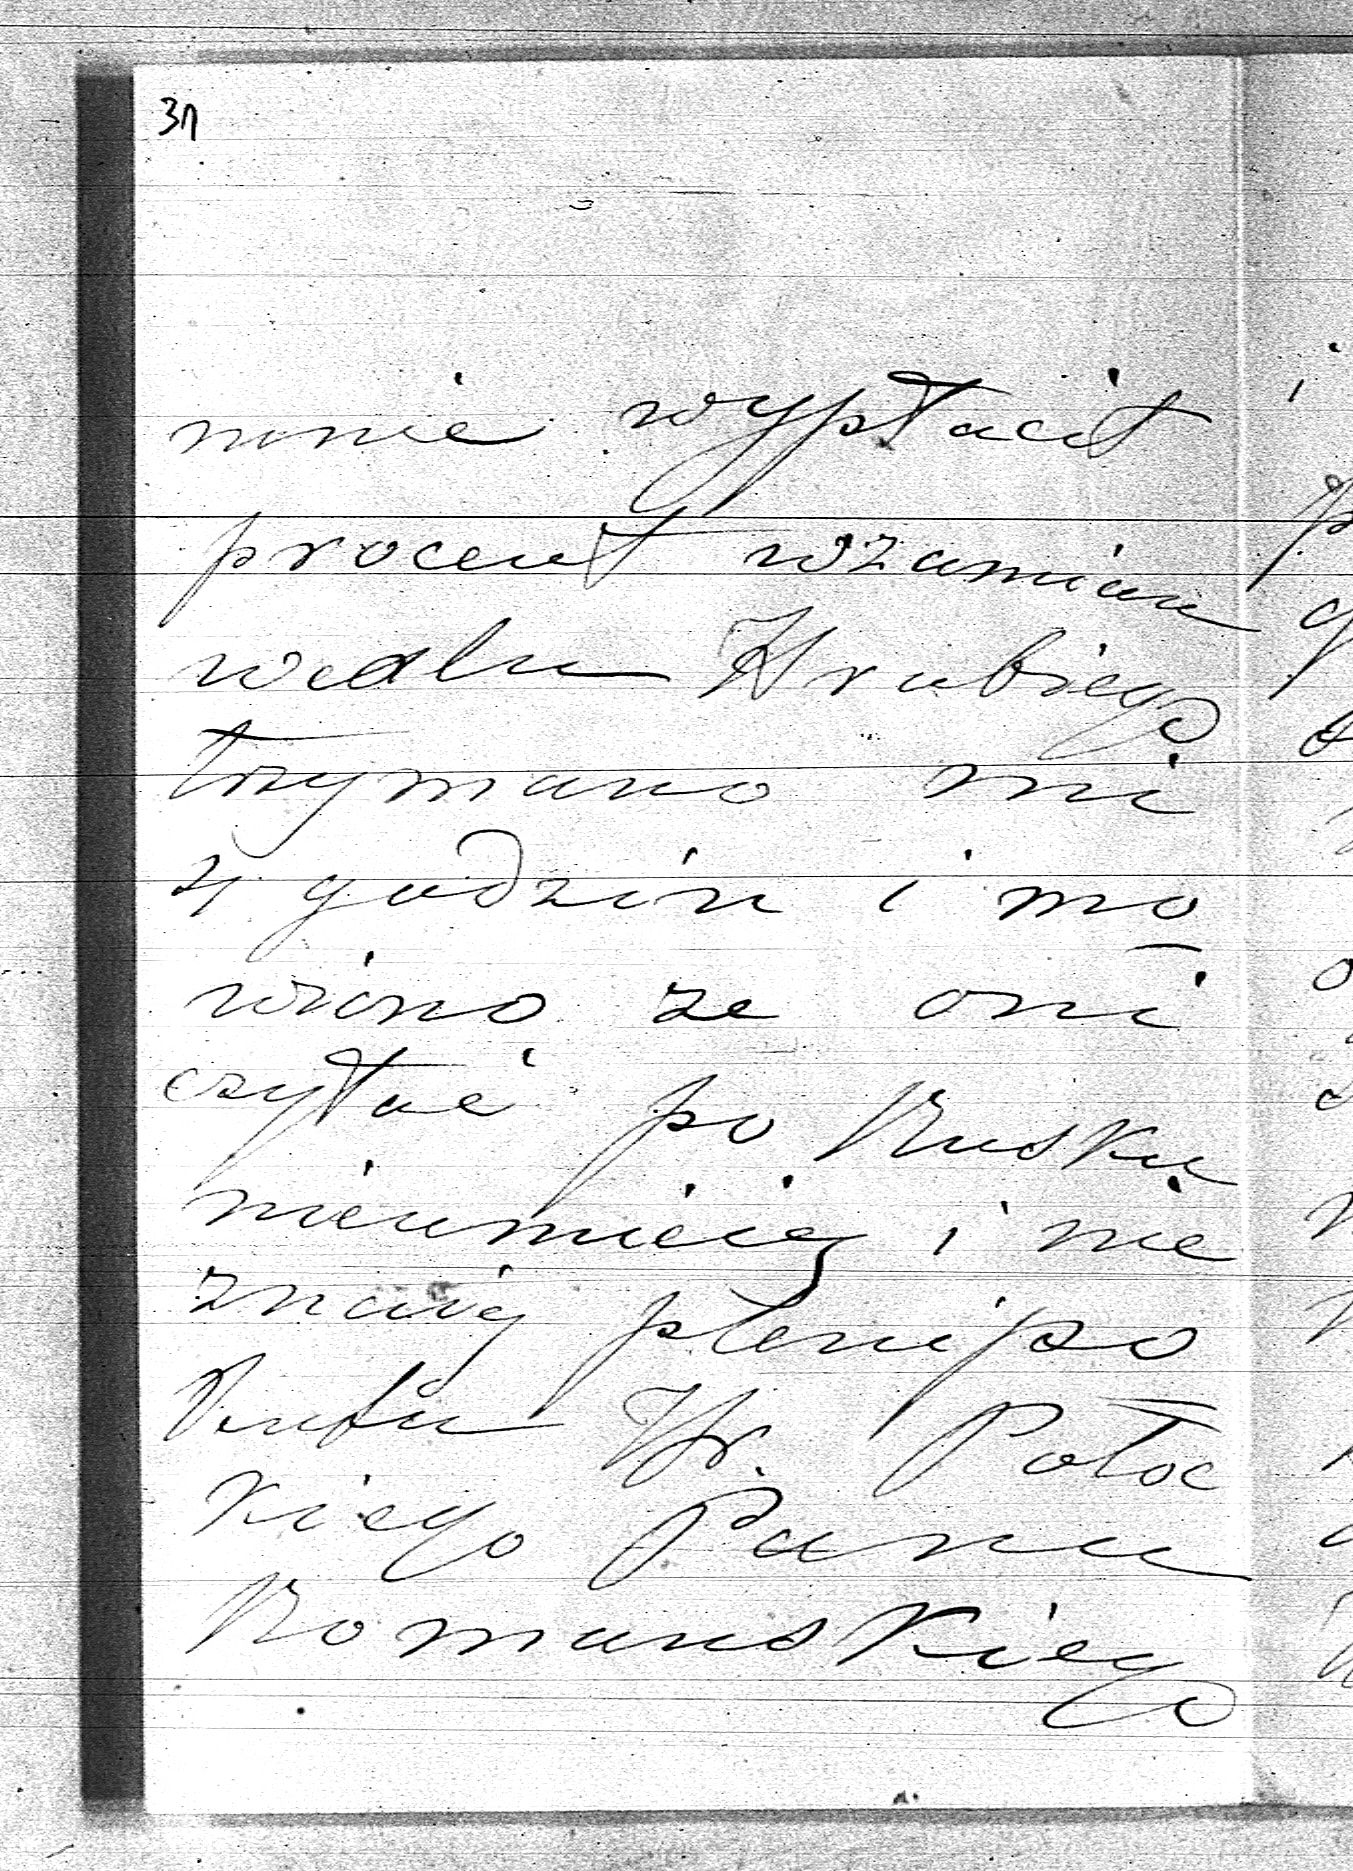 37
mnie wypłacił
procent wzamian
wedlu Hrabiego
trzymano mi
4 godzin i mo
wiono ze oni
czytać po Rusku
nieumieię i nie
znaię plenipo
tenta Hr. Potoc
kiego Pana
Romanskiego